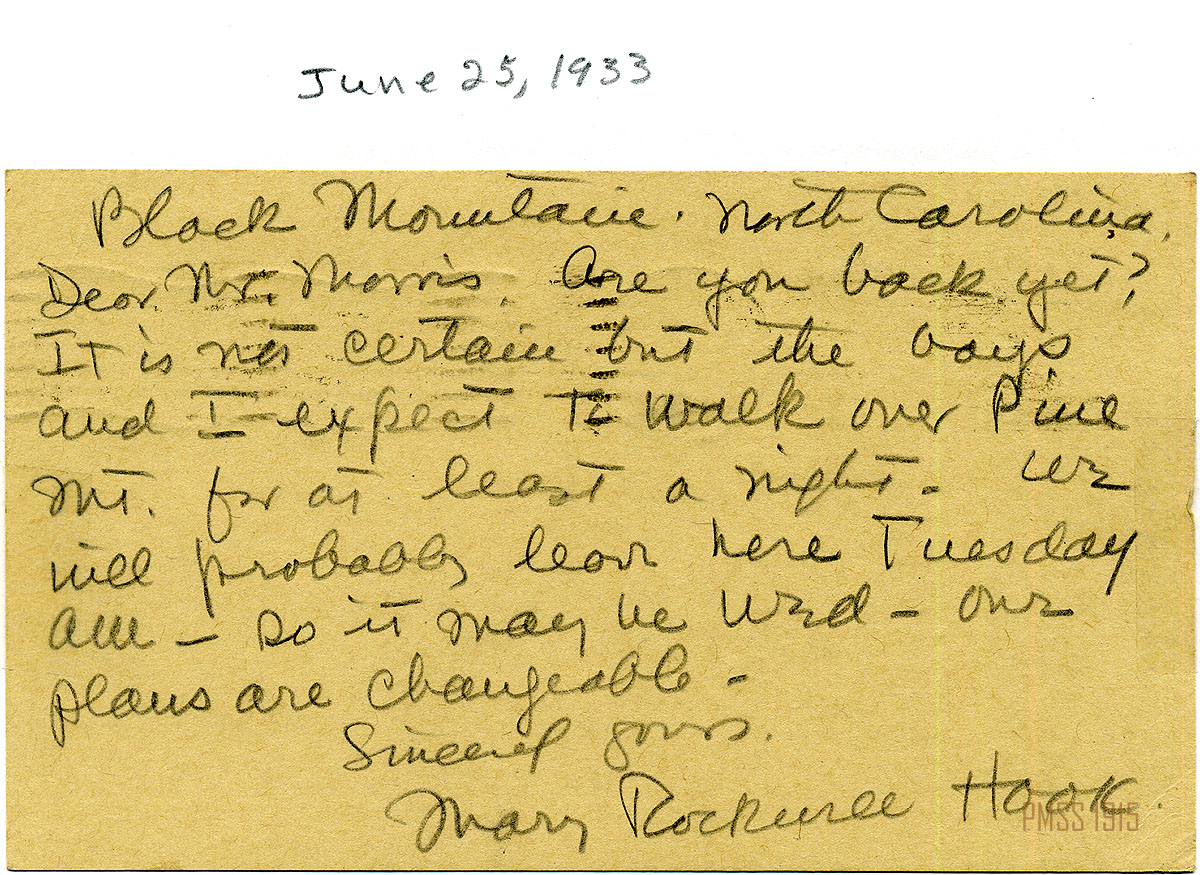 June 25, 1933
Black Mountain. North Carolina.
Dear Mr. Morris. Are you back yet?
It is not certain but the boys
and I expect to walk over Pine
Mt. for at least a night. We
will probably leave here Tuesday
AM - so it may be Wed - our
plans are changeable -
Sincerely yours.
Mary Rockwell Hook.
PMSS 1915